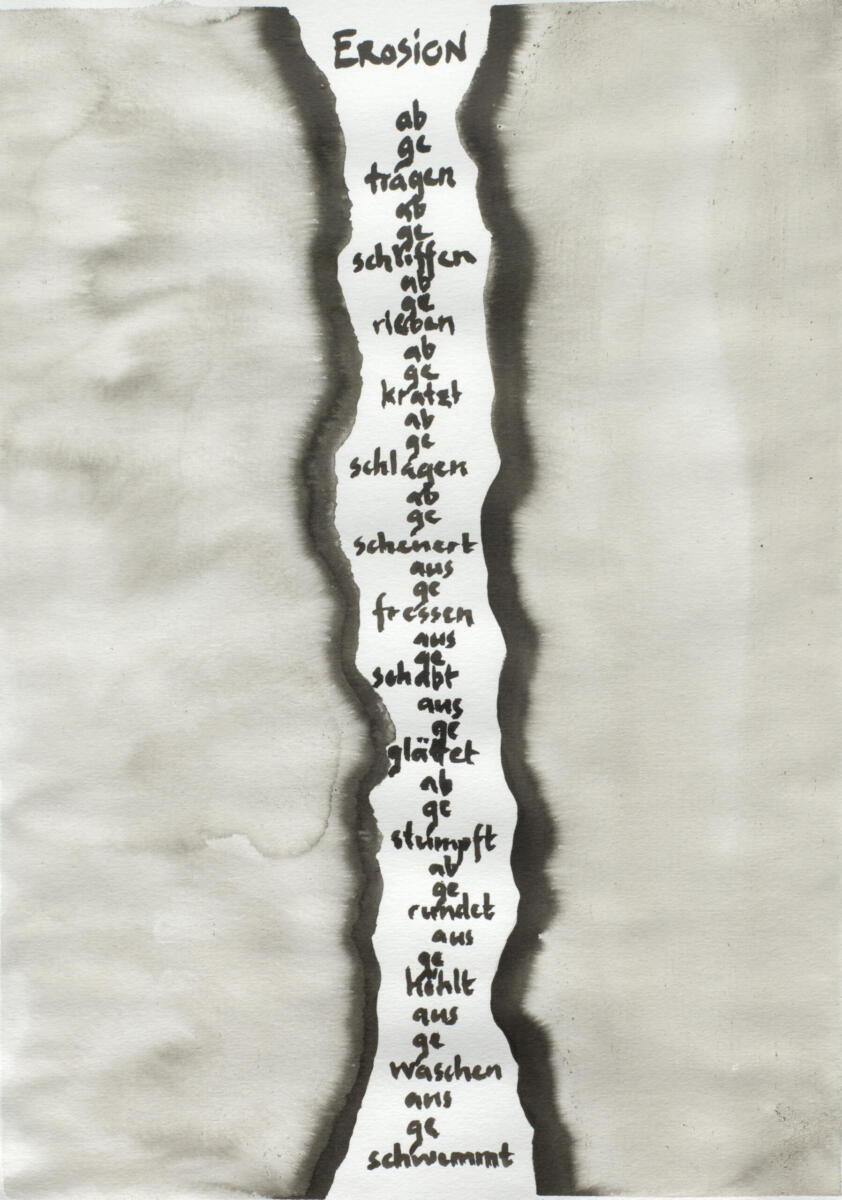 EROSION
ab
ge
tragen
ab
ge
schliffen
ab
ge
rieben
ab
ge
kratzt
ab
ge
schlagen
ab
ge
scheuert
aus
ge
fressen
aus
ge
schabt
aus
ge
glättet
ab
ge
stumpft
ab
ge
rundet
aus
ge
höhlt
aus
ge
waschen
aus
ge
schwemmt